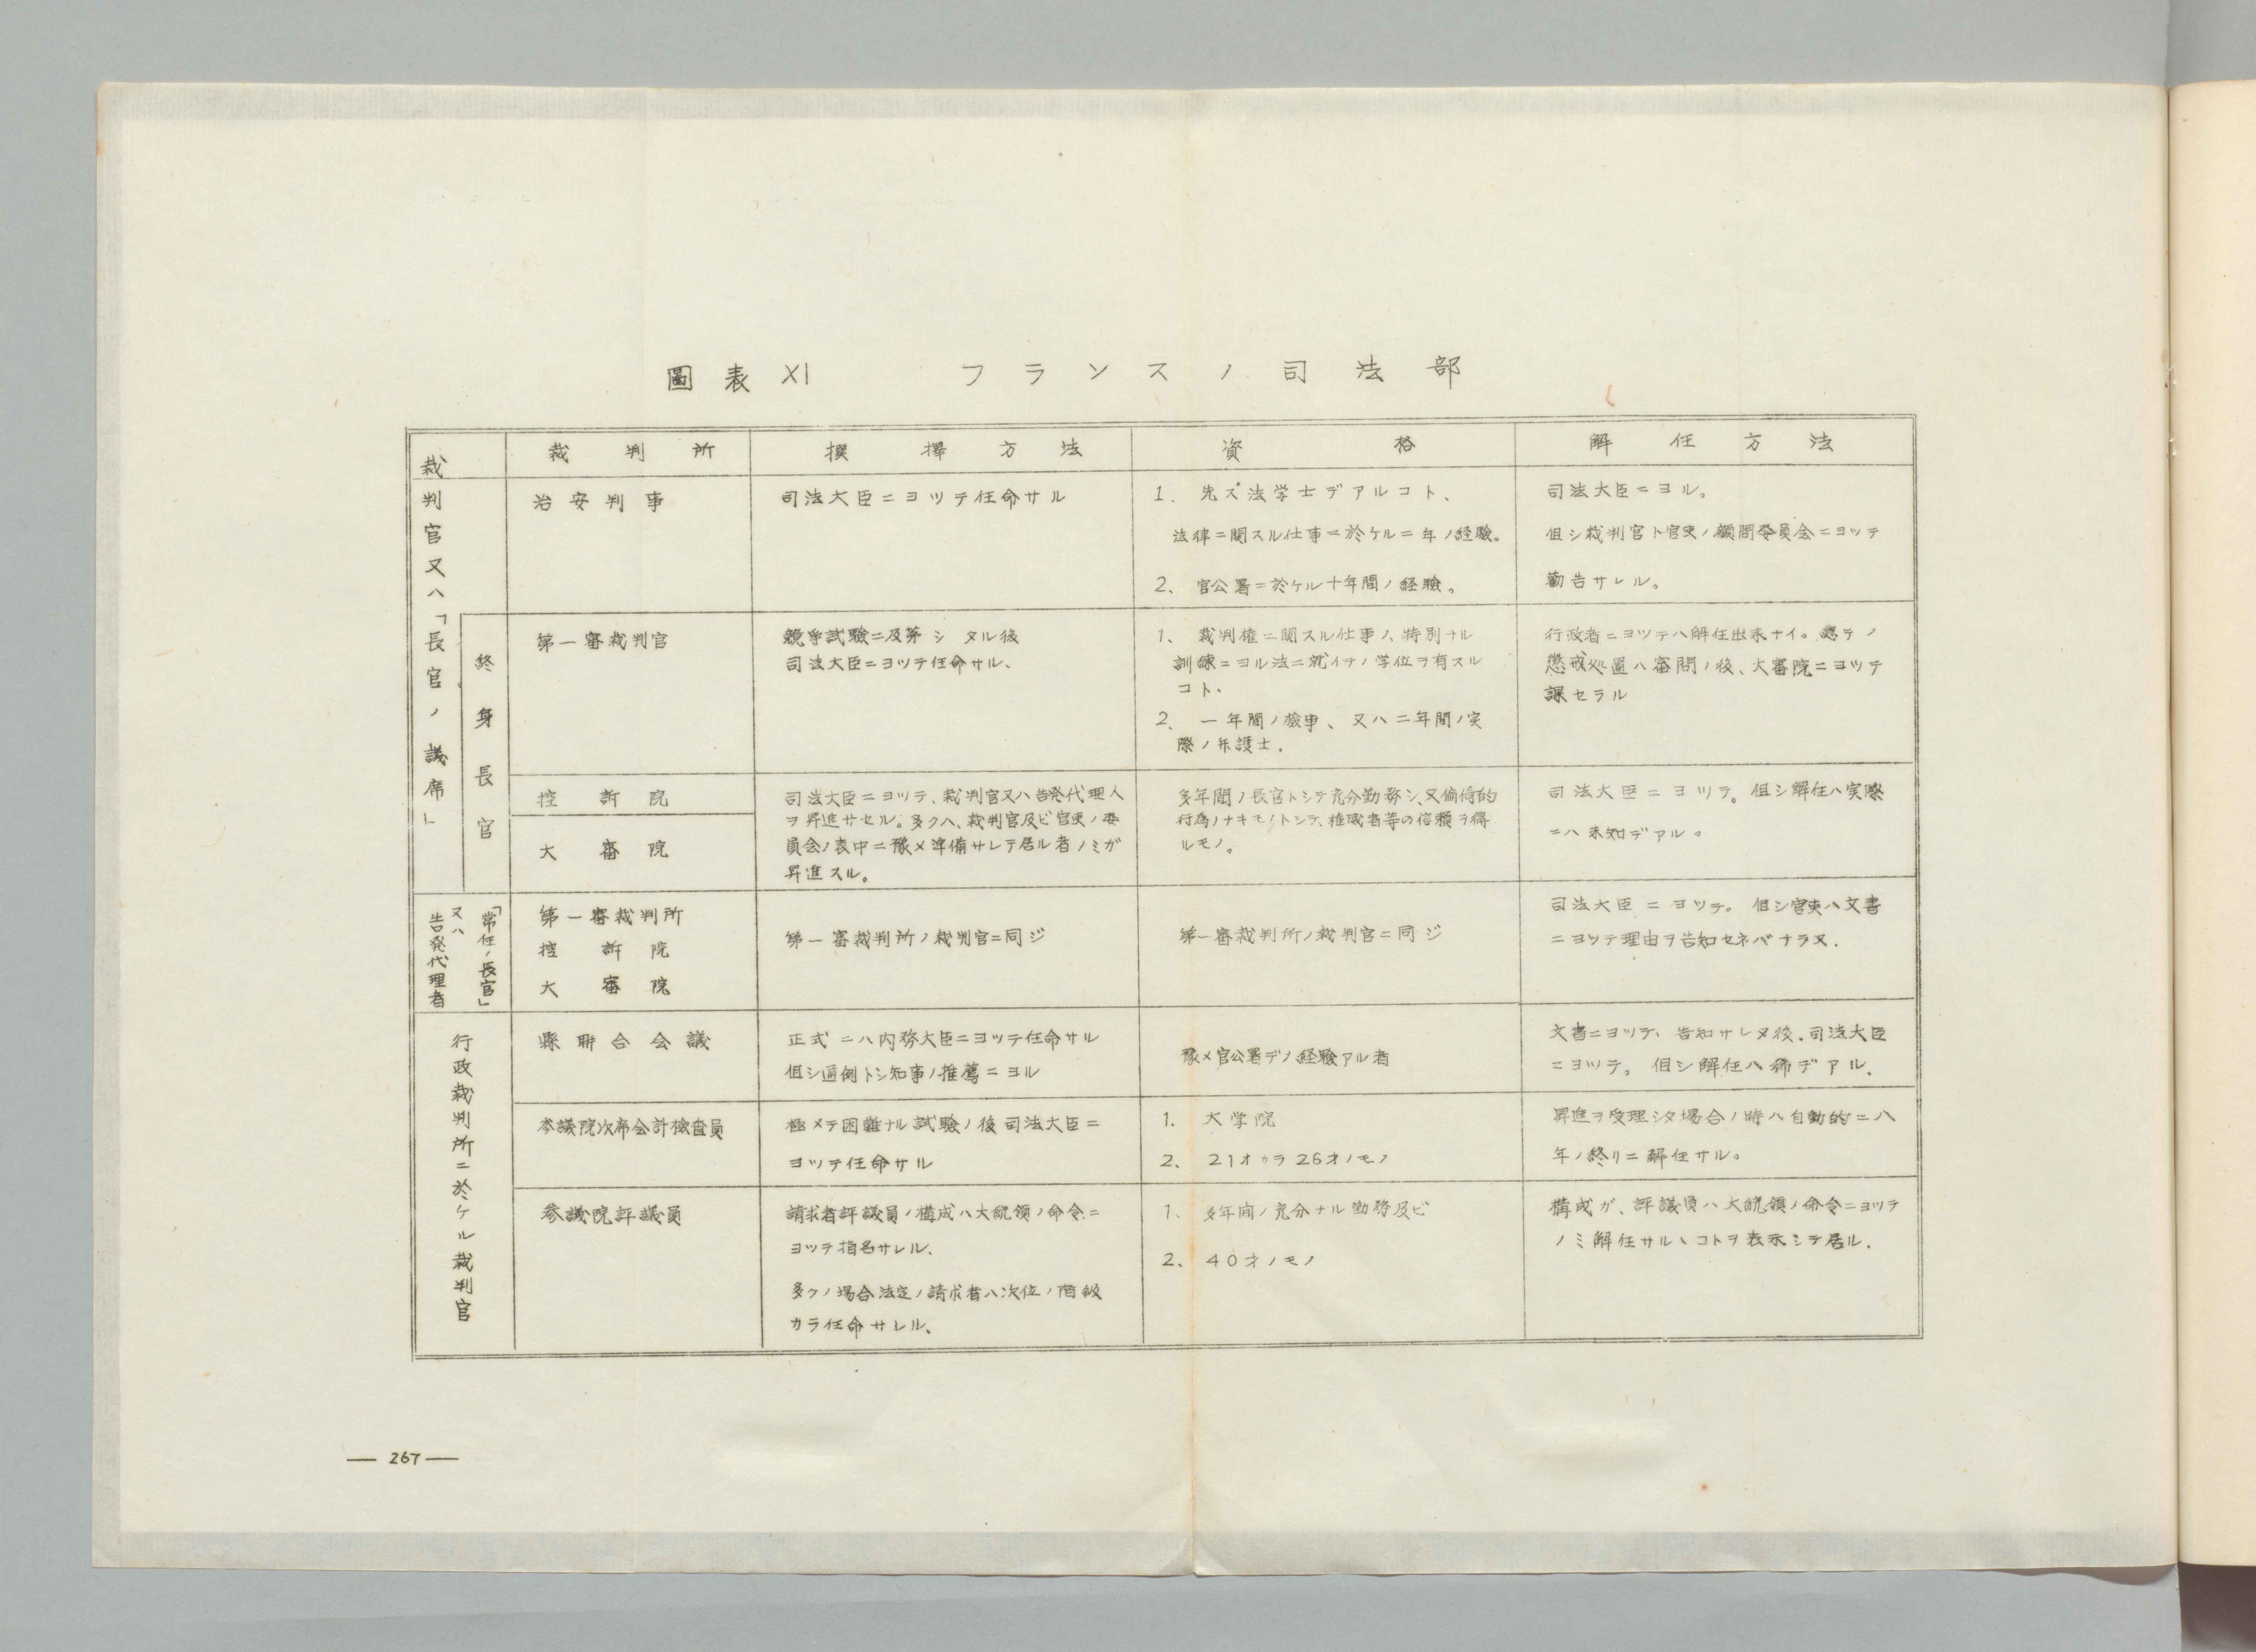 圖表 XI　フランスノ司法部
裁判所
撰擇方法
資格
解任方法
裁判官又ハ「長官ノ議席」
終身長官
治安判事
司法大臣ニヨツテ任命サル
1. 先ズ法学士デアルコト、
法律ニ関スル仕事ニ於ケル二年ノ経験。
2、官公署ニ於ケル十年間ノ経験。
司法大臣ニヨル。
但シ裁判官ト官吏ノ顧問委員会ニヨツテ
勧告サレル。
第一審裁判官
競争試験ニ及第シタル後
司法大臣ニヨツテ任命サル、
1、裁判権ニ関スル仕事ノ、特別ナル
訓練ニヨル法ニ就イテノ学位ヲ有スル
コト.
2、一年間ノ檢事、又ハ二年間ノ実
際ノ弁護士.
行政者ニヨツテハ解任出来ナイ。總テノ
懲戒処置ハ審問ノ後、大審院ニヨツテ
課セラル
控訴院
大審院
司法大臣ニヨツテ、裁判官又ハ告発代理人
ヲ昇進サセル。多クハ、裁判官及ビ官吏ノ委
員会ノ表中ニ豫メ準備サレテ居ル者ノミガ
昇進スル。
多年間ノ長官トシテ充分勤務シ、又偏倚的
行為ノナキモノトシテ、権威者等の信頼ヲ得
ルモノ。
司法大臣ニヨツテ。但シ解任ハ実際
ニハ未知デアル。
「常任ノ長官」
又ハ
告発代理者
第一審裁判所
控訴院
大審院
第一審裁判所ノ裁判官ニ同ジ
第一審裁判所ノ裁判官ニ同ジ
司法大臣ニヨツテ。但シ官吏ハ文書
ニヨツテ理由ヲ告知セネバナラヌ.
行政裁判所ニ於ケル裁判官
縣聯合会議
正式ニハ内務大臣ニヨツテ任命サル
但シ通例トシ知事ノ推薦ニヨル
豫メ官公署デノ経験アル者
文書ニヨツテ、告知サレタ後、司法大臣
ニヨツテ。但シ解任ハ稀デアル.
参議院次席会計検査員
極メテ困難ナル試験ノ後司法大臣ニ
ヨツテ任命サル
1. 大学院
2、21才カラ26才ノモノ
昇進ヲ受理シタ場合ノ時ハ自動的ニ八
年ノ終リニ解任サル。
参議院評議員
請求者評議員ノ構成ハ大統領ノ命令ニ
ヨツテ指名サレル.
多クノ場合法定ノ請求者ハ次位ノ階級
カラ任命サレル、
1、多年間ノ充分ナル勤務及ビ
2、40才ノモノ
構成ガ、評議員ハ大統領ノ命令ニヨツテ
ノミ解任サルヽコトヲ表示シテ居ル.
— 267 —